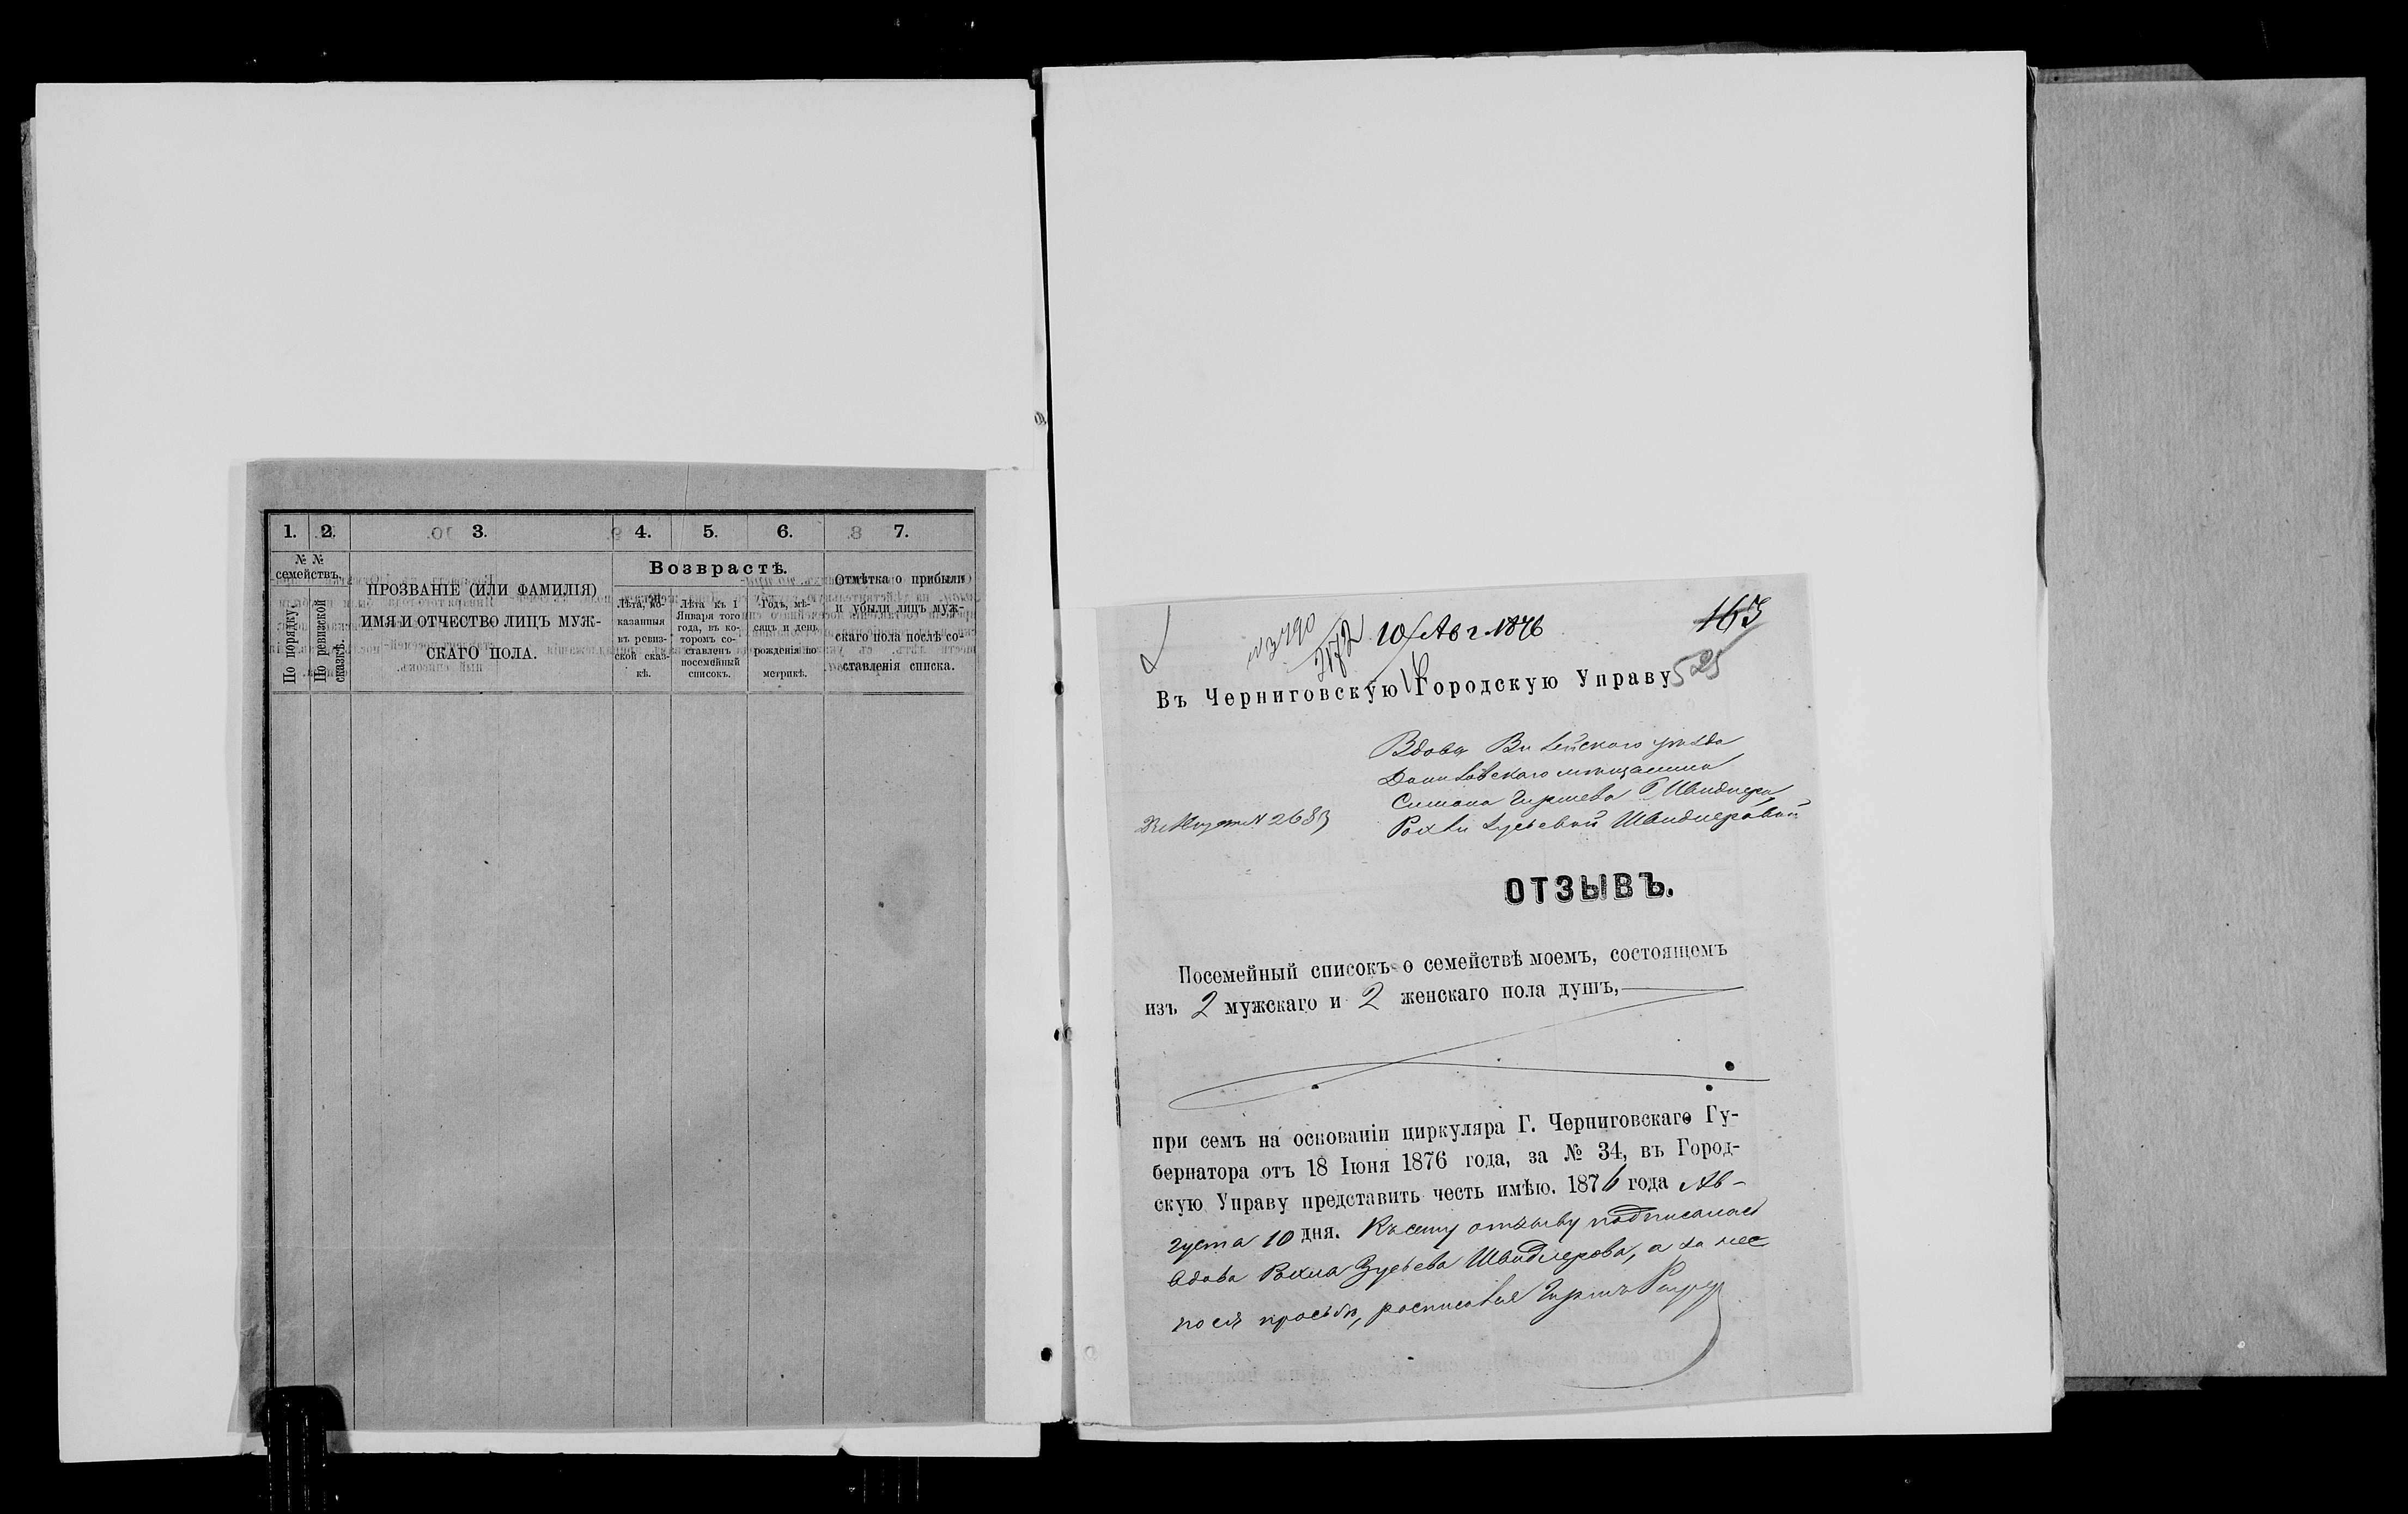 1. 2. 3. 4. 5. 6. 7.
№ № семействъ.
По порядку.
По ревизской сказкѣ.
ПРОЗВАНІЕ (ИЛИ ФАМИЛІЯ)
ИМЯ И ОТЧЕСТВО ЛИЦЪ МУЖ-
СКАГО ПОЛА.
Возрастъ.
Лѣта, по-
казанныя
въ ревиз-
ской сказ-
кѣ.
Лѣта къ 1
Января того
года, въ ко-
торомъ со-
ставленъ
посемейный
списокъ.
Годъ, мѣ-
сяцъ и день
рожденія по
метрикѣ.
Отмѣтка о прибыли
и убыли лицъ муж-
скаго пола послѣ со-
ставленія списка.
№ 3790
2172
10 Авг. 1876
163
525
Въ Черниговскую Городскую Управу
Вдовы уѣзда
мѣщанина
Симона Гиршева Швидлера
Рохли Зусьевой Швидлеровой
№ 2683
ОТЗЫВЪ.
Посемейный списокъ о семействѣ моемъ, состоящемъ
изъ 2 мужскаго и 2 женскаго пола душъ,
при семъ на основаніи циркуляра Г. Черниговскаго Гу-
бернатора отъ 18 Іюня 1876 года, за № 34, въ Город-
скую Управу представить честь имѣю. 1876 года Ав-
густа 10 дня. Къ сему отзыву подписалась
вдова Рохля Зусьева Швидлерова, а за нее
по ея просьбѣ, росписался Гиршъ